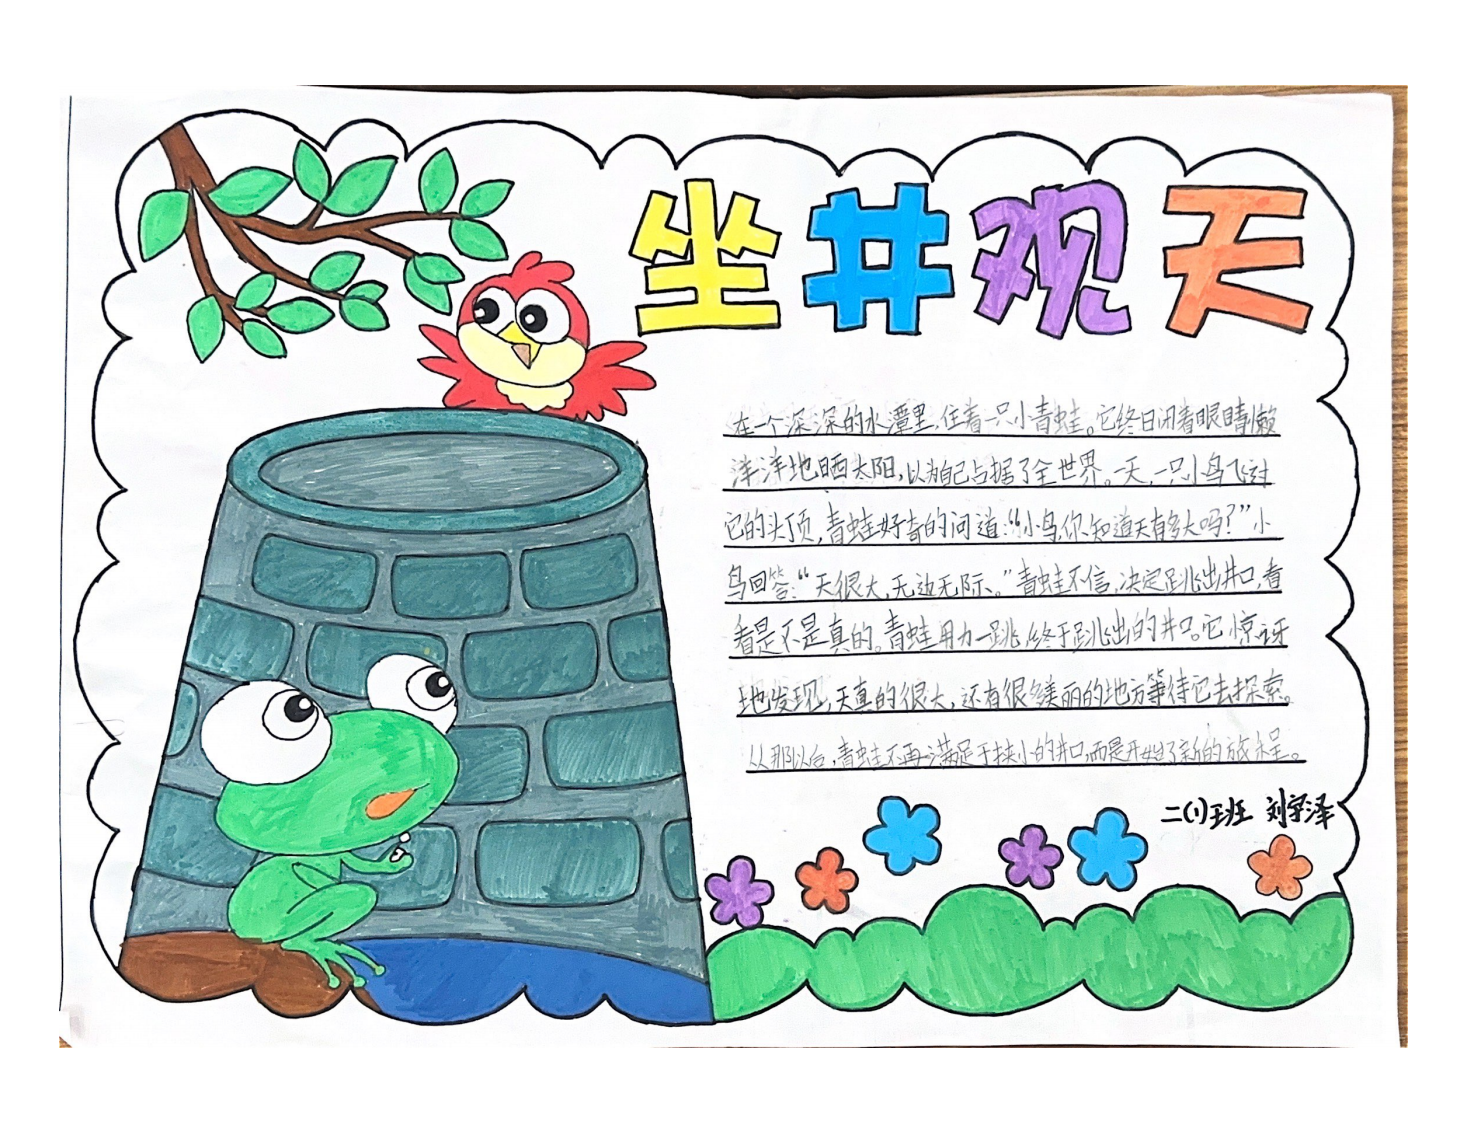 坐井观天
在一个深深的水潭里,住着一只小青蛙。它终日闭着眼睛懒
洋洋地晒太阳,以为自己占据了全世界。一天,一只小鸟飞过
它的头顶,青蛙好奇的问道:“小鸟,你知道天有多大吗?”小
鸟回答:“天很大,无边无际。”青蛙不信,决定跳出井口,看
看是不是真的。青蛙用力一跳,终于跳出的井口。它惊讶
地发现,天真的很大,还有很多美丽的地方等待它去探索。
从那以后,青蛙不再满足于狭小的井口,而是开始了新的旅程。
二(1)班 刘宇泽